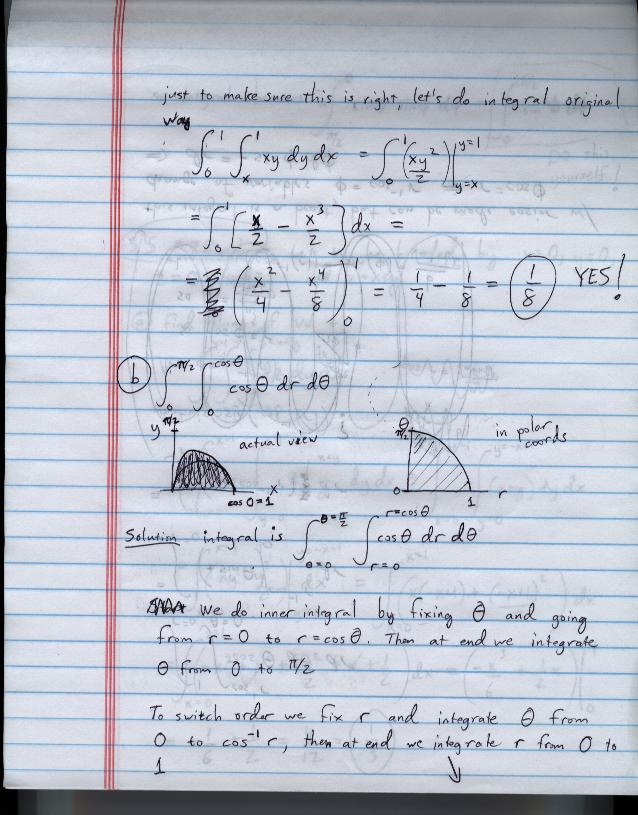 just to make sure this is right, let's do integral original
way
∫₀¹ ∫ₓ¹ xy dy dx = ∫₀¹ (xy²/2)|y=1 y=x
= ∫₀¹ [x/2 − x³/2] dx =
= (x²/4 − x⁴/8)₀¹ = 1/4 − 1/8 = 1/8 YES!
b ∫₀^π/2 ∫₀^cosθ cos θ dr dθ
y π/2 actual view x cos 0 = 1
θ π/2 in polar coords 0 1 r
Solution integral is ∫θ=0^θ=π/2 ∫r=0^r=cosθ cos θ dr dθ
We do inner integral by fixing θ and going
from r = 0 to r = cos θ. Then at end we integrate
θ from 0 to π/2
To switch order we fix r and integrate θ from
0 to cos⁻¹ r, then at end we integrate r from 0 to
1 ↓